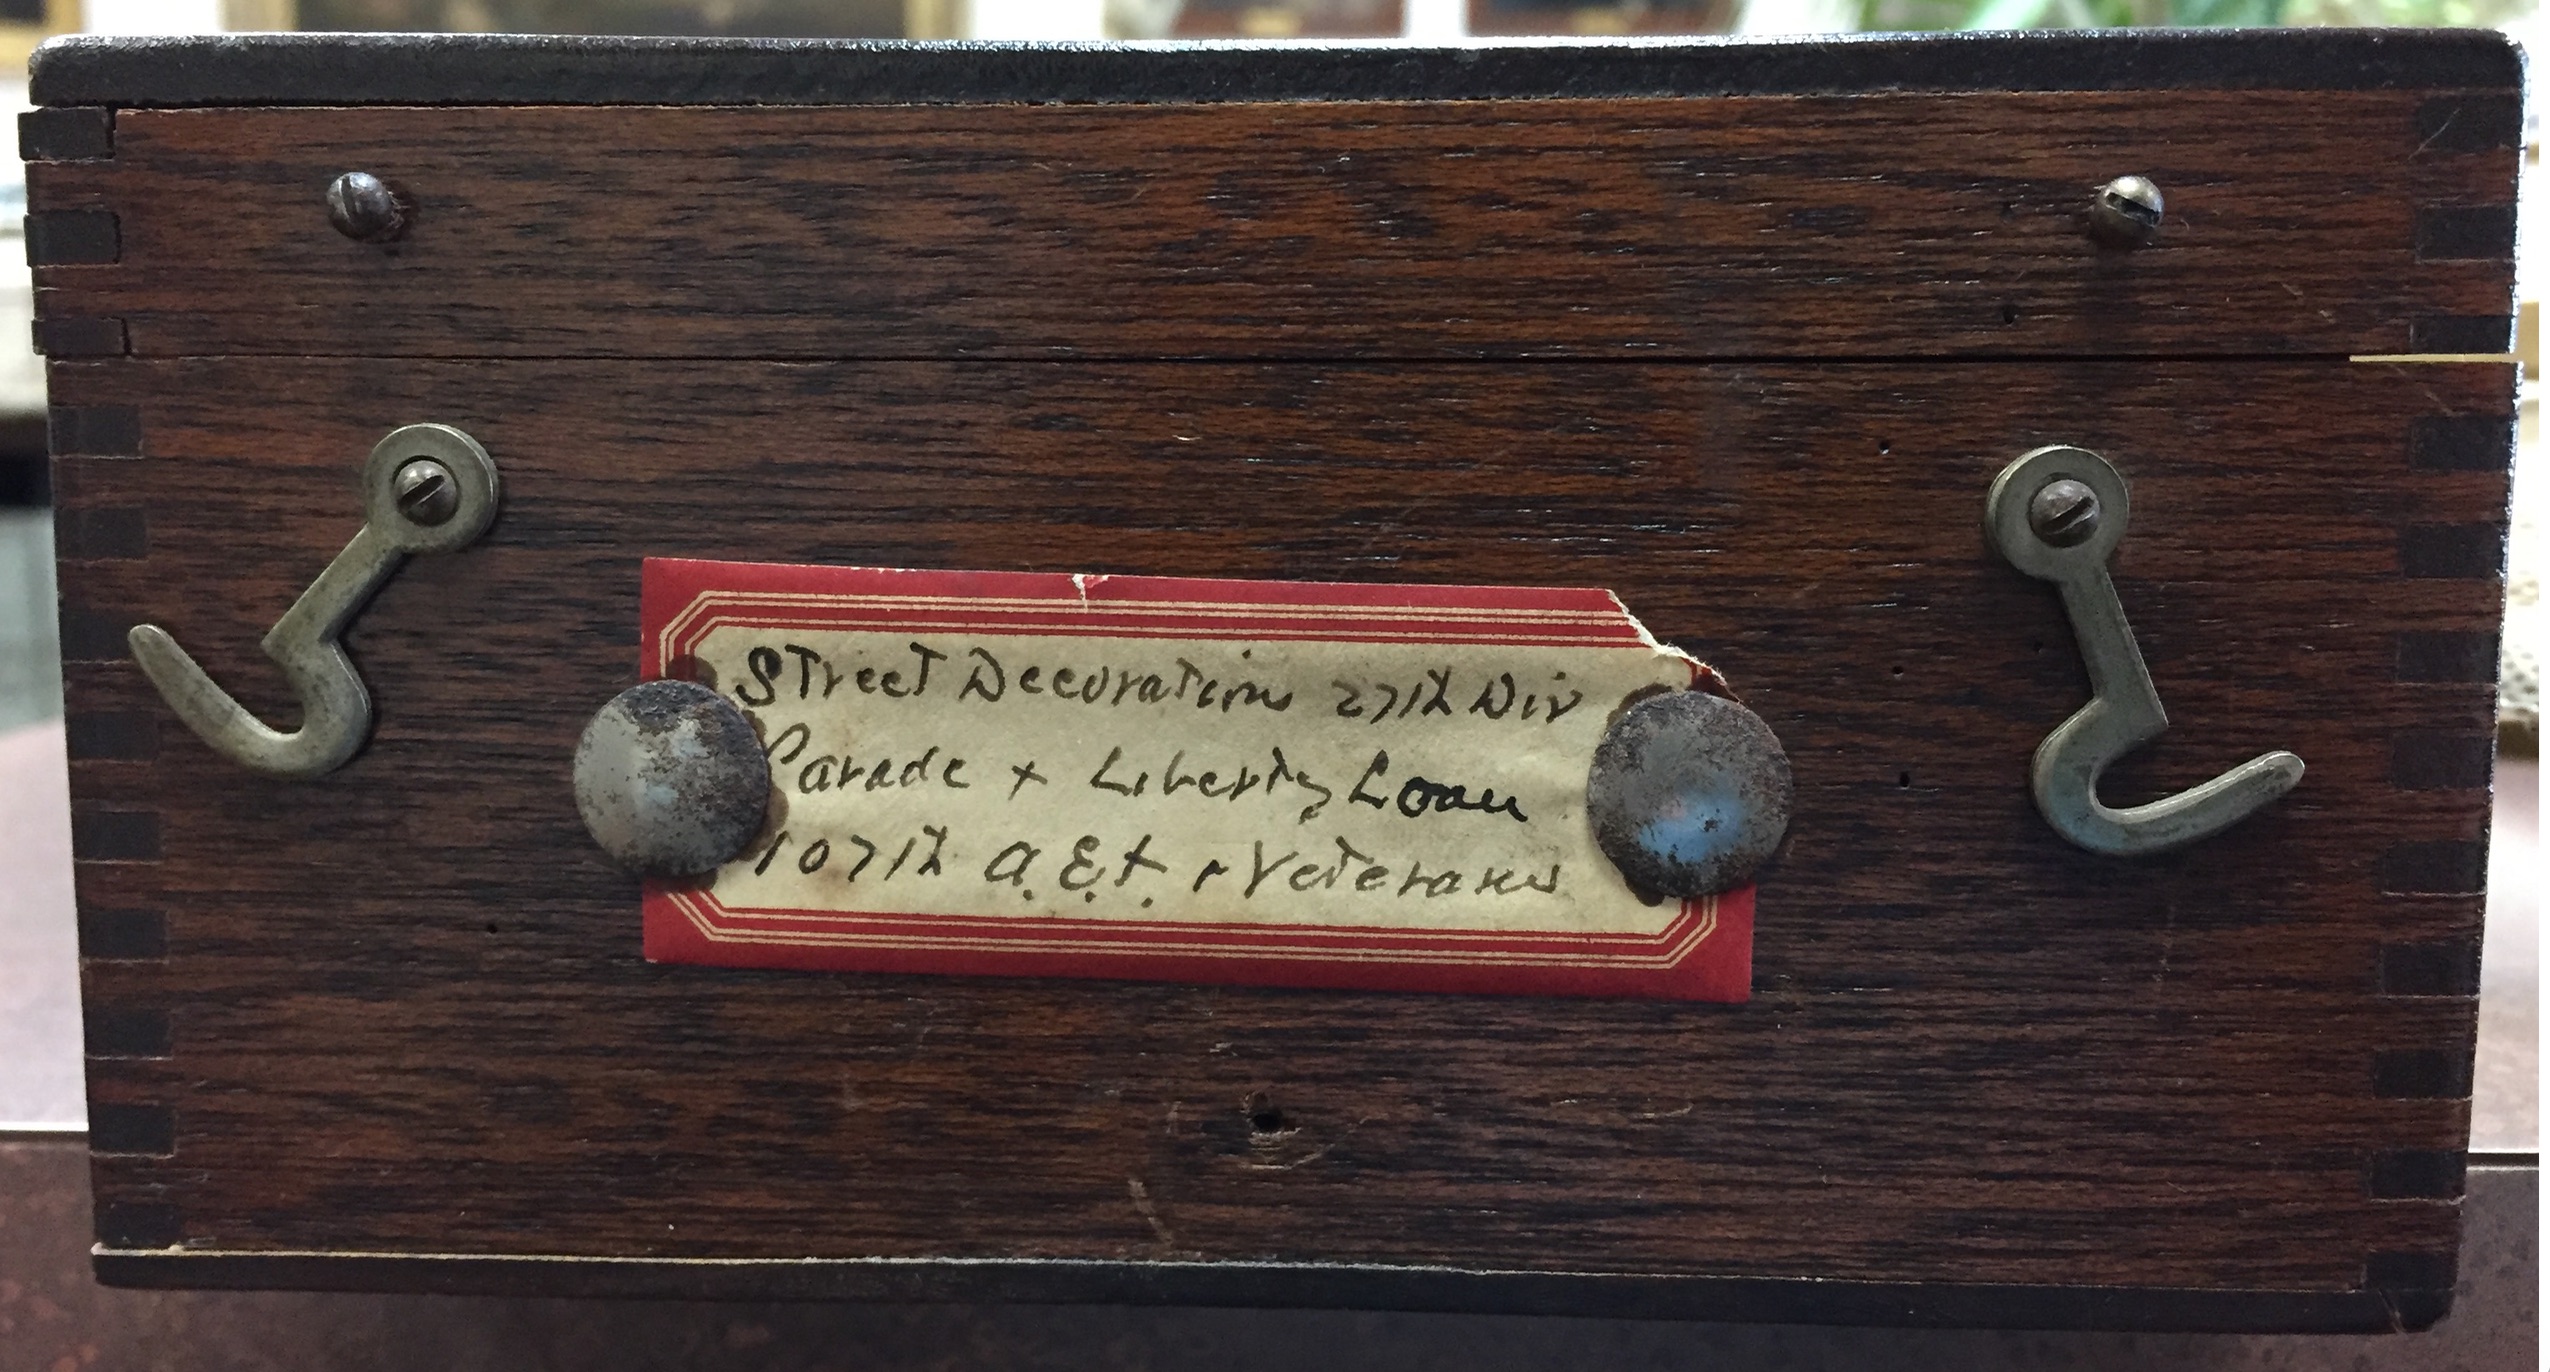 Street Decoration 27th Div
Parade + Liberty Loan
107th A.E.F. + Veterans